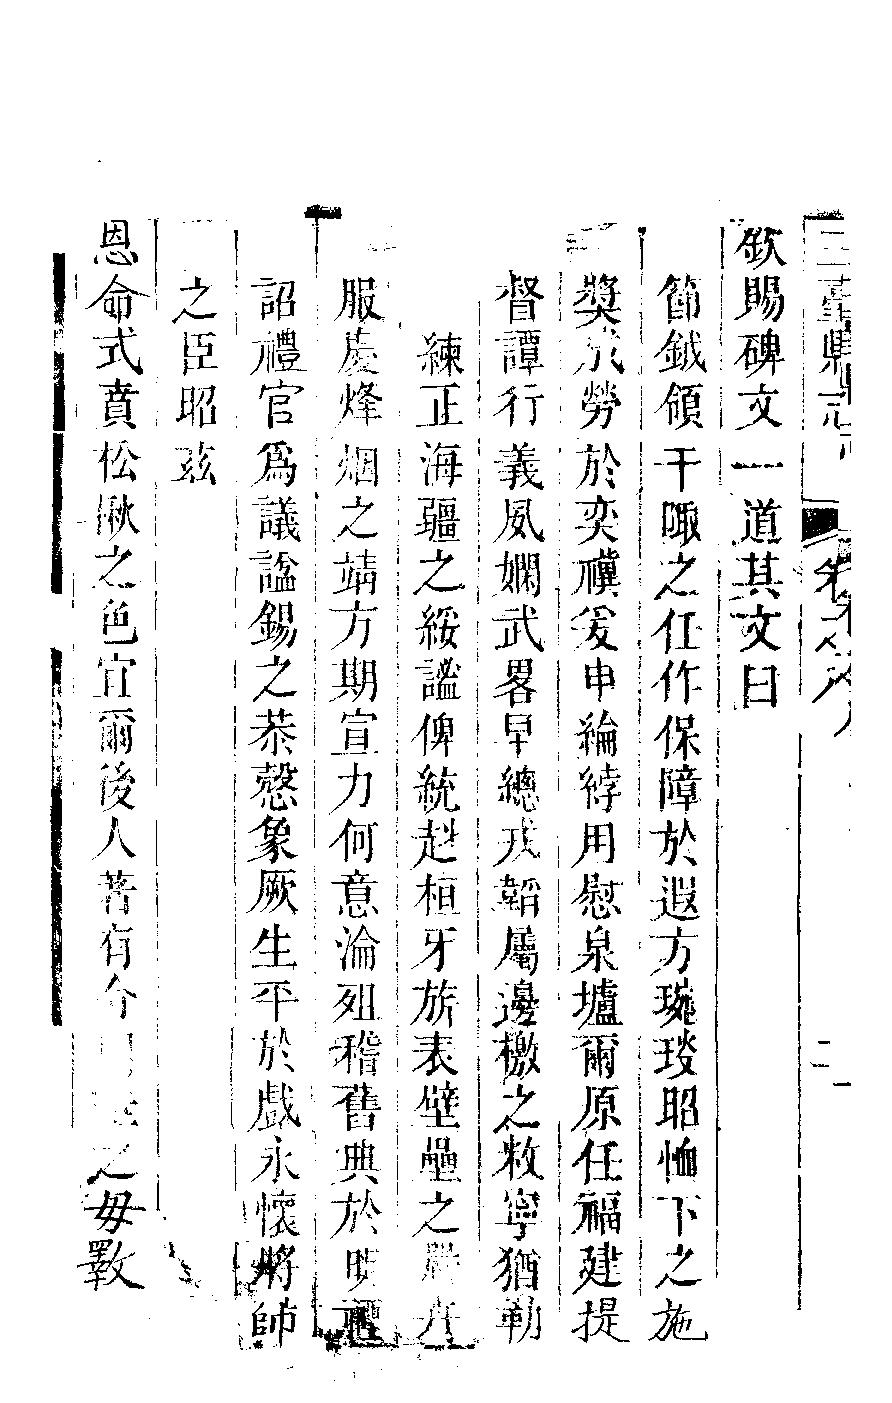 三臺縣志
欽賜碑文一道其文曰
節鉞領干陬之任作保障於遐方琬琰昭恤下之施
獎成勞於奕禩爰申綸綍用慰泉壚爾原任福建提
督譚行義夙嫻武畧早總戎韜屬邊檄之敉寧猶勒
練正海疆之綏謐俾統赳桓牙旂表壁壘之
服慶烽烟之靖方期宣力何意淪殂稽舊典於明禋
詔禮官爲議諡錫之恭慤象厥生平於戲永懷將帥
之臣昭玆
恩命式賁松楸之色宜爾後人著有今之毋斁